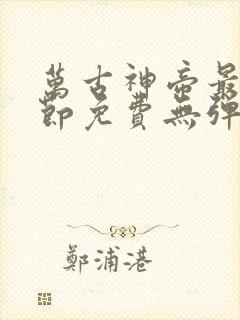 萬古神帝最
節免費無彈
鄭浦港